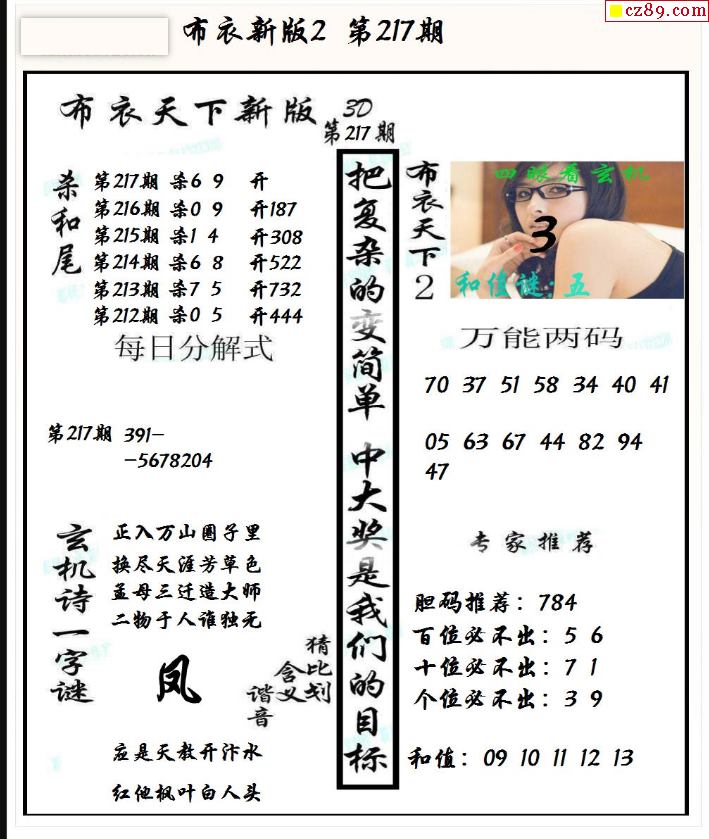 cz89.com
布衣新版2 第217期
布衣天下新版 3D
第217期
杀和尾
第217期 杀6 9 开
第216期 杀0 9 开187
第215期 杀1 4 开308
第214期 杀6 8 开522
第213期 杀7 5 开732
第212期 杀0 5 开444
每日分解式
第217期 391-
-5678204
玄机诗一字谜
正入万山圈子里
换尽天涯芳草色
孟母三迁造大师
二物于人谁独无
凤
猜比划
含义
谐音
应是天教开汴水
红他枫叶白人头
把复杂的变简单 中大奖是我们的目标
布衣天下2
四眼看玄机
3
和值谜:五
万能两码
70 37 51 58 34 40 41
05 63 67 44 82 94
47
专家推荐
胆码推荐: 784
百位必不出: 5 6
十位必不出: 7 1
个位必不出: 3 9
和值: 09 10 11 12 13